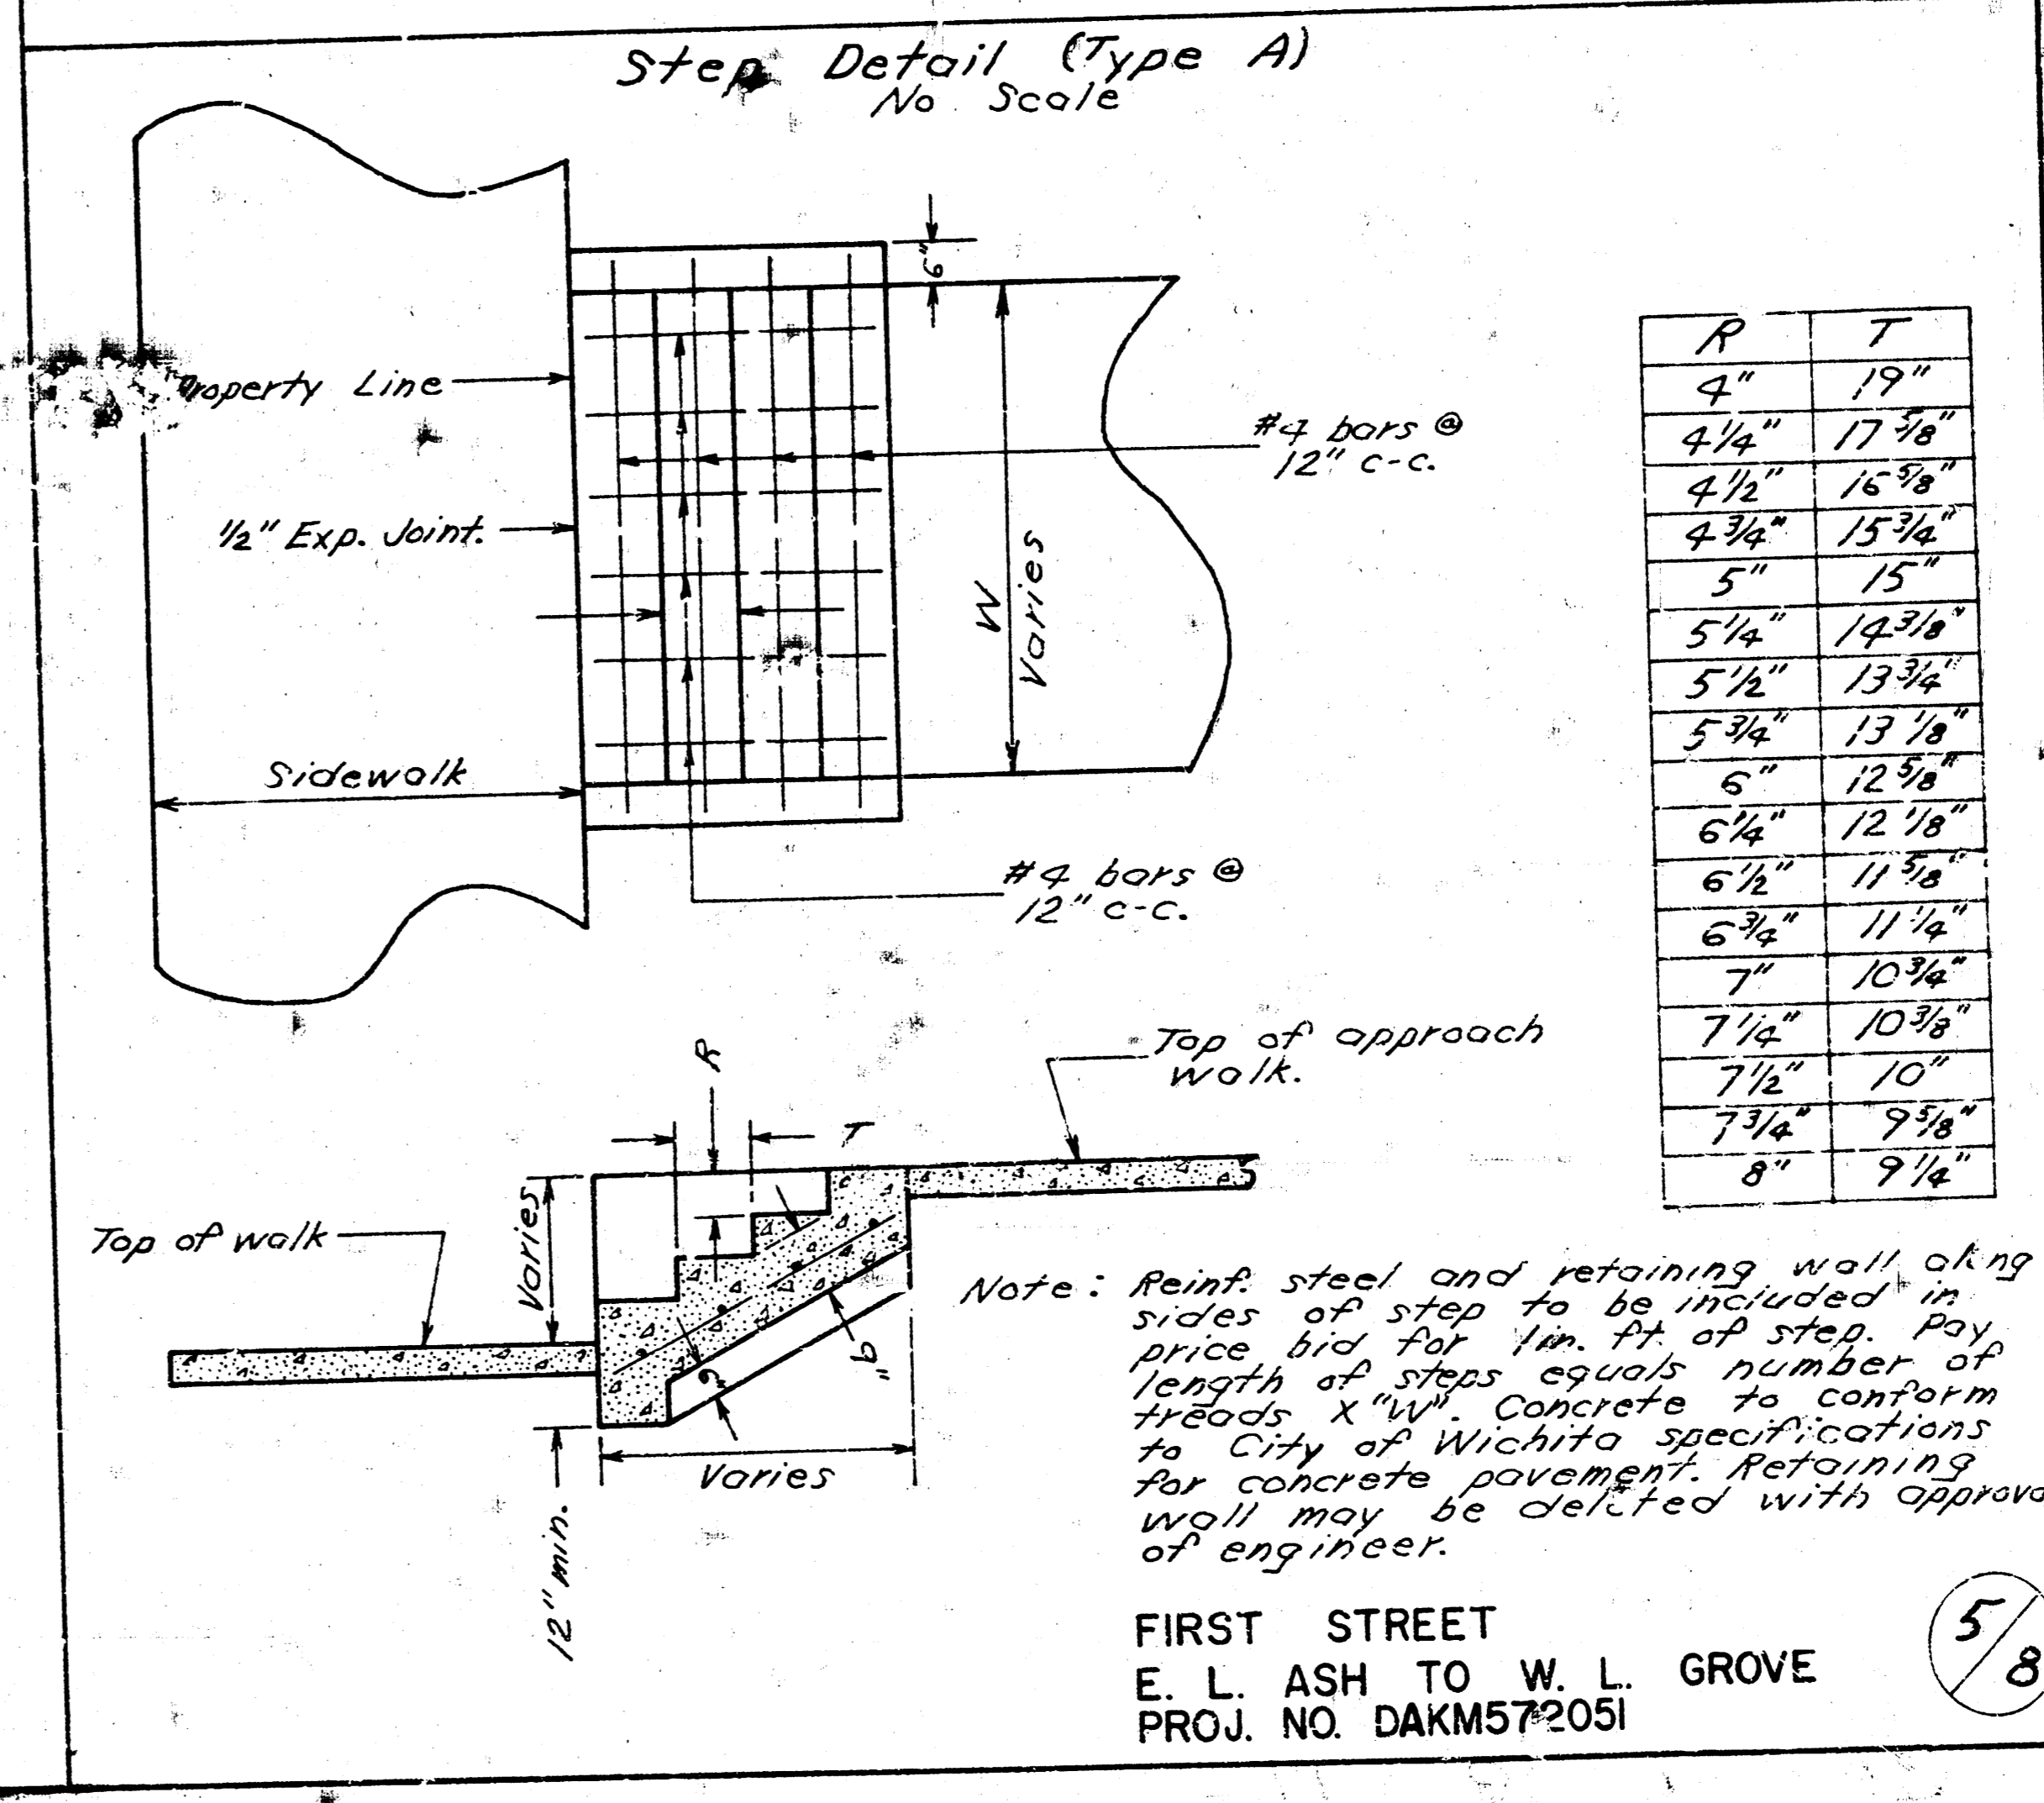 Step Detail (Type A)
No Scale
6"
Property Line
#4 bars @
12" c-c.
1/2" Exp. Joint.
W
Varies
Sidewalk
#4 bars @
12" c-c.
R T
4" 19"
4 1/4" 17 5/8"
4 1/2" 16 5/8"
4 3/4" 15 3/4"
5" 15"
5 1/4" 14 3/8"
5 1/2" 13 3/4"
5 3/4" 13 1/8"
6" 12 5/8"
6 1/4" 12 1/8"
6 1/2" 11 5/8"
6 3/4" 11 1/4"
7" 10 3/4"
7 1/4" 10 3/8"
7 1/2" 10"
7 3/4" 9 5/8"
8" 9 1/4"
R
T
Top of approach
walk.
Top of walk
Varies
Varies
12" min.
Note: Reinf. steel and retaining wall along
sides of step to be included in
price bid for lin. ft. of step. Pay
length of steps equals number of
treads X "W". Concrete to conform
to City of Wichita specifications
for concrete pavement. Retaining
wall may be deleted with approva
of engineer.
FIRST STREET
E. L. ASH TO W. L. GROVE
PROJ. NO. DAKM572051
5/8